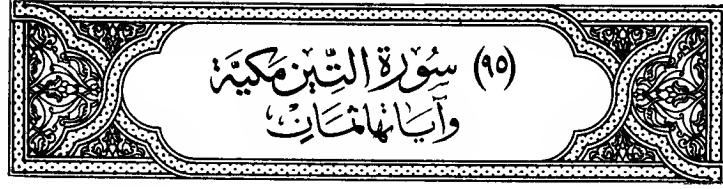 (٩٥) سُورَة التِّين مَكيَّة
وَآيَاتهَا ثمَانِ